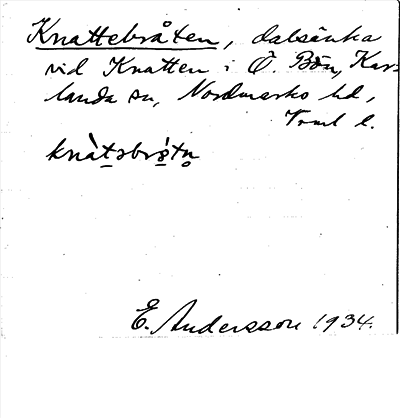 Knattebråten, dalsänka
vid Knatten i Ö. Bön, Kar-
landa sn, Nordmarks hd,
Vrml l.
knàtəbrǻtn̥
E. Andersson 1934.